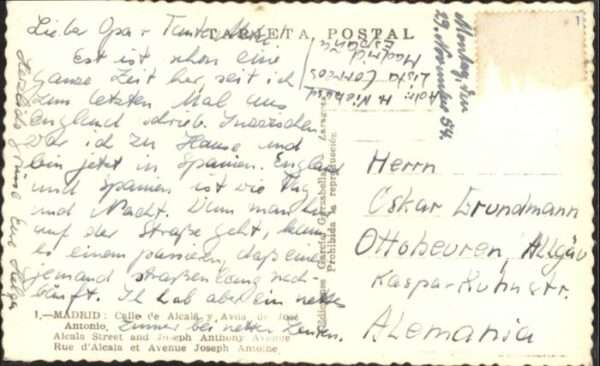 TARJETA POSTAL
Lieber Opa + Tante
Es ist schon eine
ganze Zeit her, seit ich
zum letzten Mal aus
England schrieb. Inzwischen
war ich zu Hause und
bin jetzt in Spanien. England
und Spanien ist wie Tag
und Nacht. Wenn man hier
auf der Straße geht, kann
es einem passieren, daß einem
jemand straßenlang nach-
läuft. Ich hab aber ein nettes
Zimmer bei netten Leuten.
Herzliche Grüsse Eure Helga
Montag, den
29. November 54.
Lista Correos
Madrid
España
Herrn
Oskar Grundmann
Ottobeuren/Allgäu
Kaspar-Kuhn-str.
Alemania
Ediciones García Garrabella Zaragoza
Prohibida la reproducción.
1.—MADRID: Calle de Alcalá y Avda. de José
Antonio.
Alcala Street and Joseph Anthony Avenue
Rue d'Alcala et Avenue Joseph Antoine